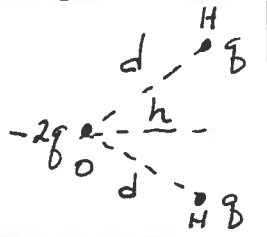 H
d q
h
-2q
O
d
H q